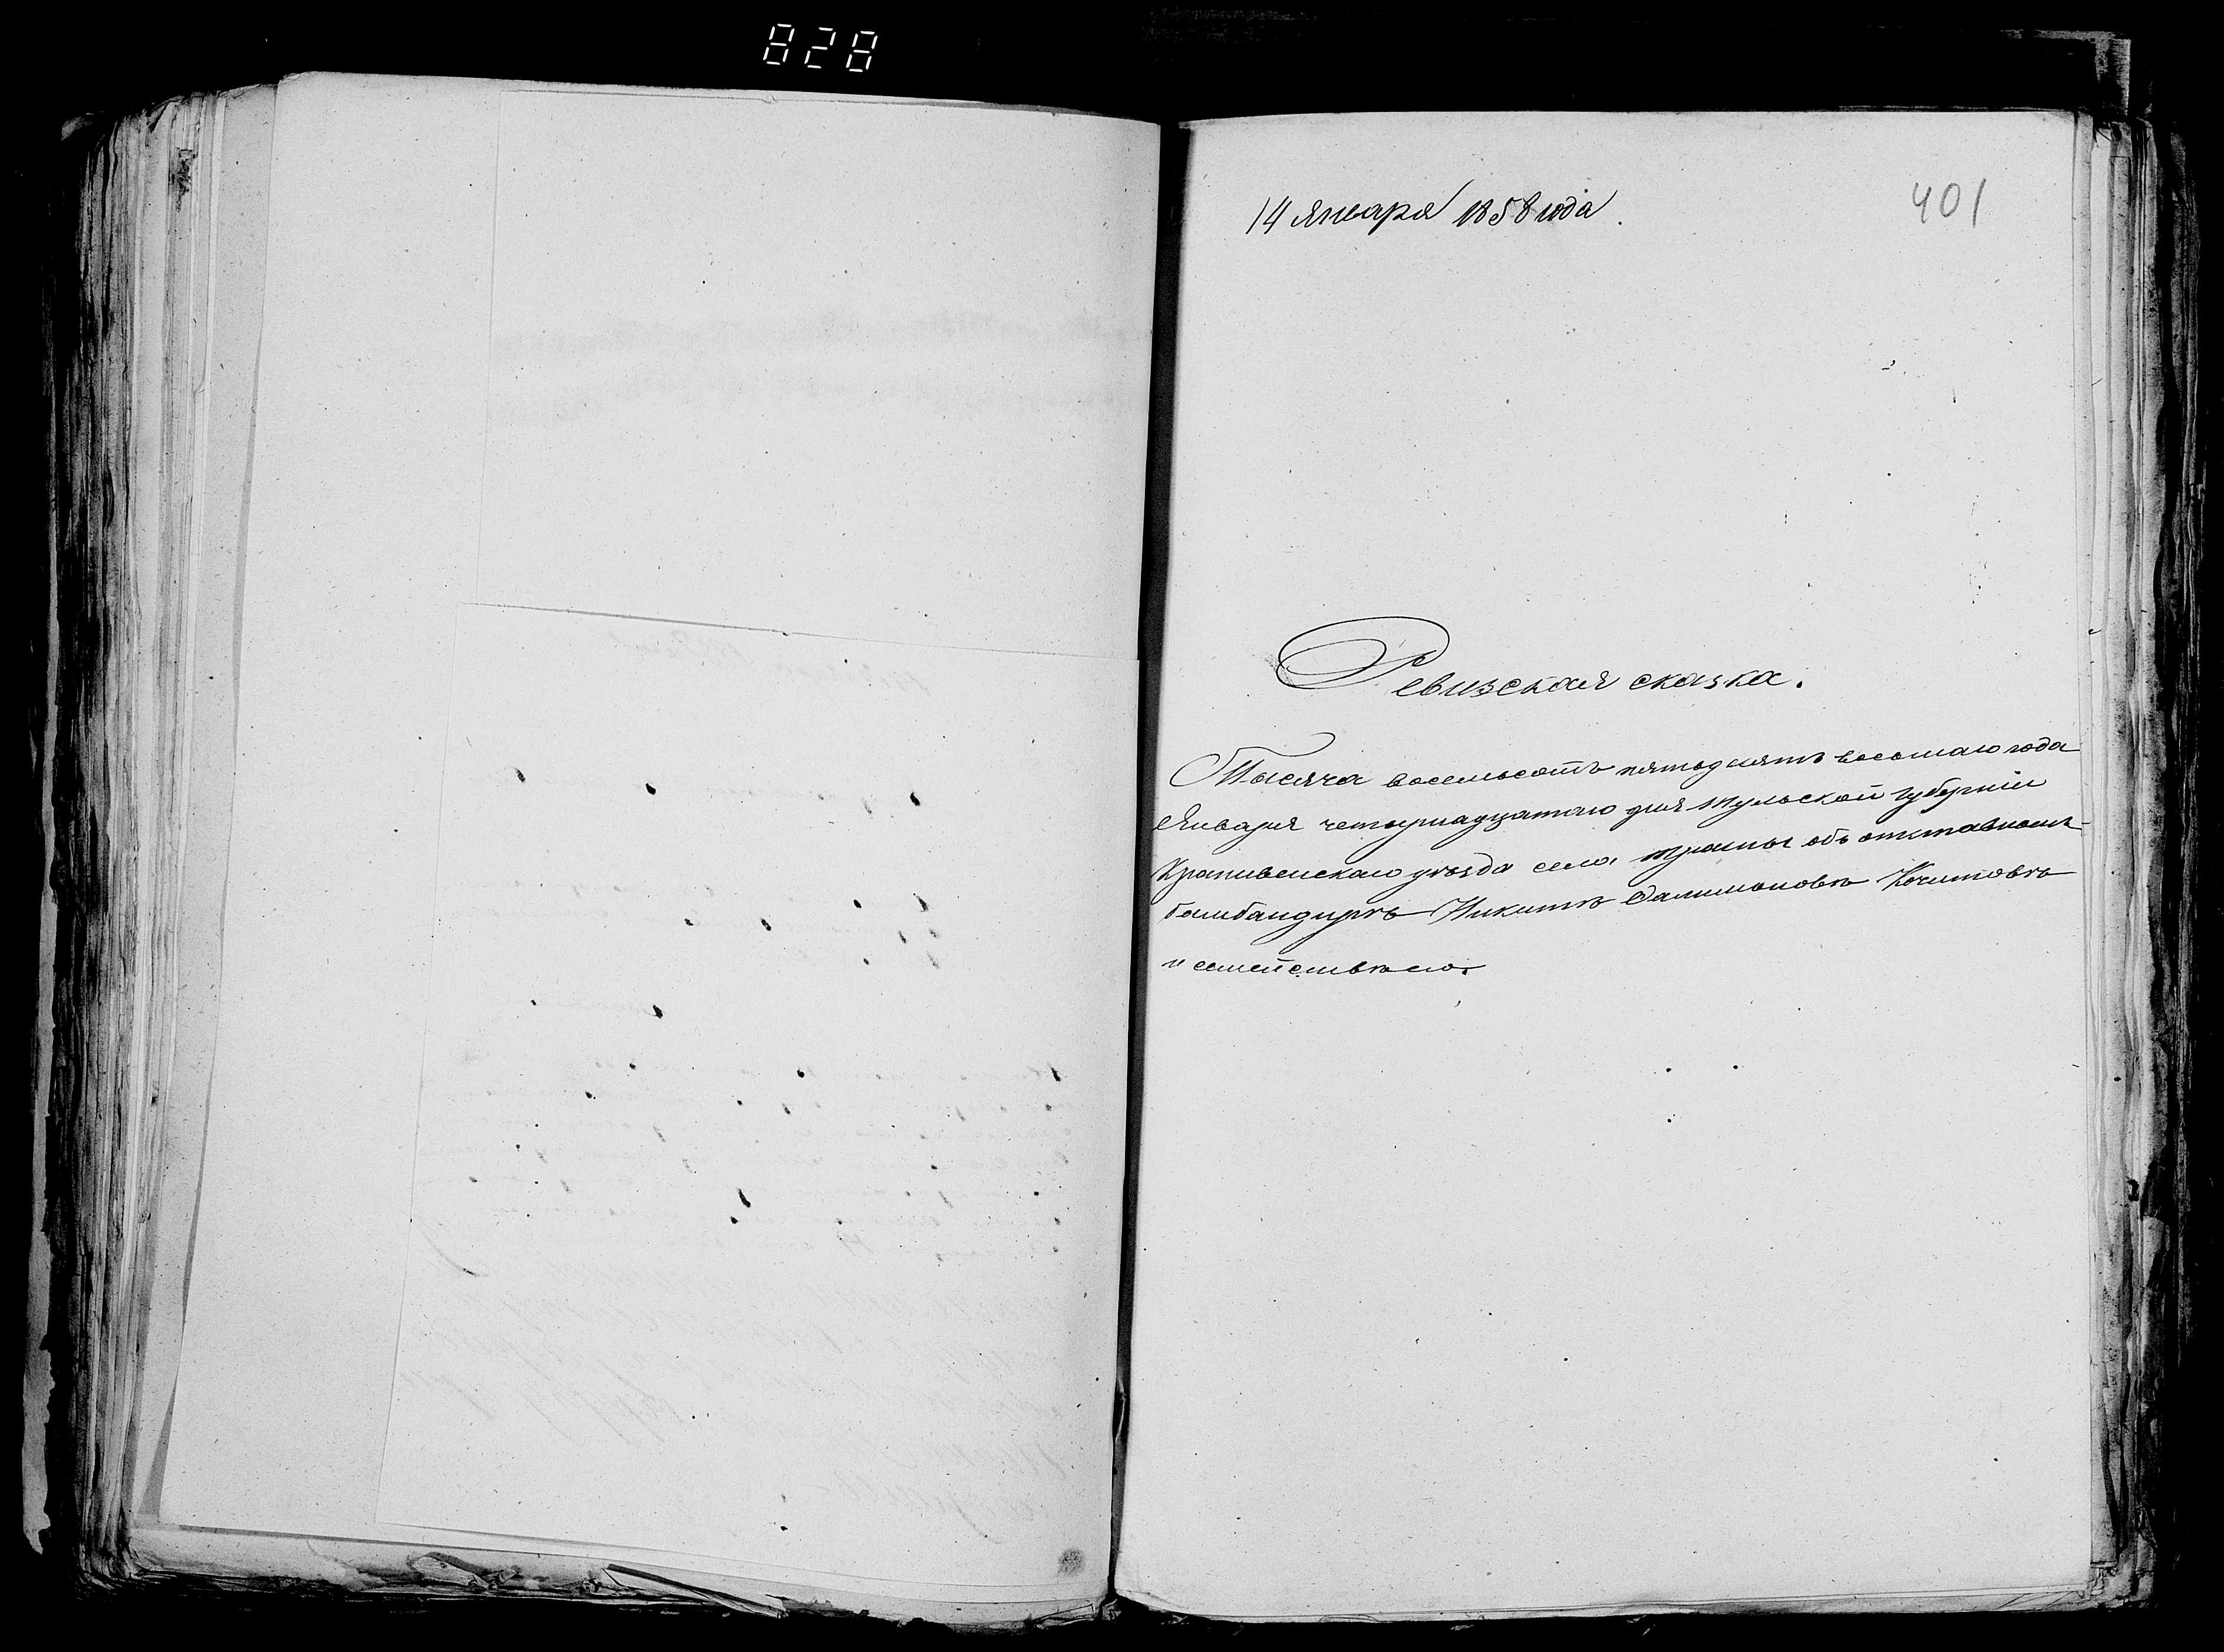 828
14 Января 1858 года.
401
Ревизская сказка.
Тысяча восемьсотъ пятьдесятъ восьмаго года
Января четырнадцатаго дня Тульской губерніи
Крапивенскаго уѣзда села объ отставномъ
бомбандирѣ Никитѣ
и семействѣ его.